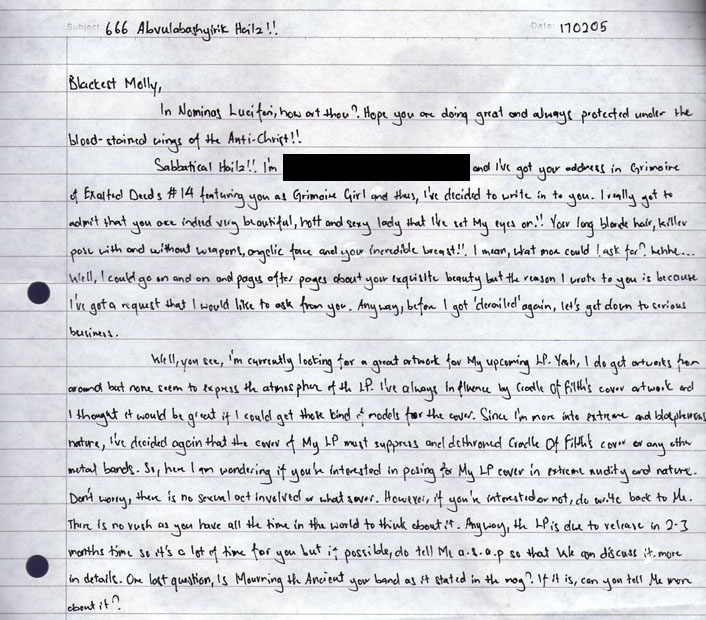 Subject: 666 Abvulabashyirik Hailz!! Date: 170205
Blackest Molly,
In Nominas Luciferi, how art thou? Hope you are doing great and always protected under the
blood-stained wings of the Anti-Christ!!
Sabbatical Hailz!! I'm and I've got your address in Grimoire
of Exalted Deeds #14 featuring you as Grimoire Girl and thus, I've decided to write in to you. I really got to
admit that you are indeed very beautiful, hott and sexy lady that I've set My eyes on!! Your long blonde hair, killer
pose with and without weapons, angelic face and your incredible breast!!. I mean, what more could I ask for? hehhe...
Well, I could go on and on and pages after pages about your exquisite beauty but the reason I wrote to you is because
I've got a request that I would like to ask from you. Anyway, before I got 'derailed' again, let's get down to serious
business.
Well, you see, I'm currently looking for a great artwork for My upcoming LP. Yeah, I do get artworks from
around but none seem to express the atmospher of the LP. I've always influence by Cradle Of Filth's cover artwork and
I thought it would be great if I could get those kind of models for the cover. Since I'm more into extreme and blasphemous
nature, I've decided again that the cover of My LP must suppress and dethroned Cradle Of Filth's cover or any other
metal bands. So, here I am wondering if you're interested in posing for My LP cover in extreme nudity and nature.
Don't worry, there is no sexual act involved or what soever. However, if you're interested or not, do write back to Me.
There is no rush as you have all the time in the world to think about it. Anyway, the LP is due to release in 2-3
months time so it's a lot of time for you but if possible, do tell Me a.s.a.p so that We can discuss it more
in details. One last question, is Mourning the Ancient your band as it stated in the mag? If it is, can you tell Me more
about it?